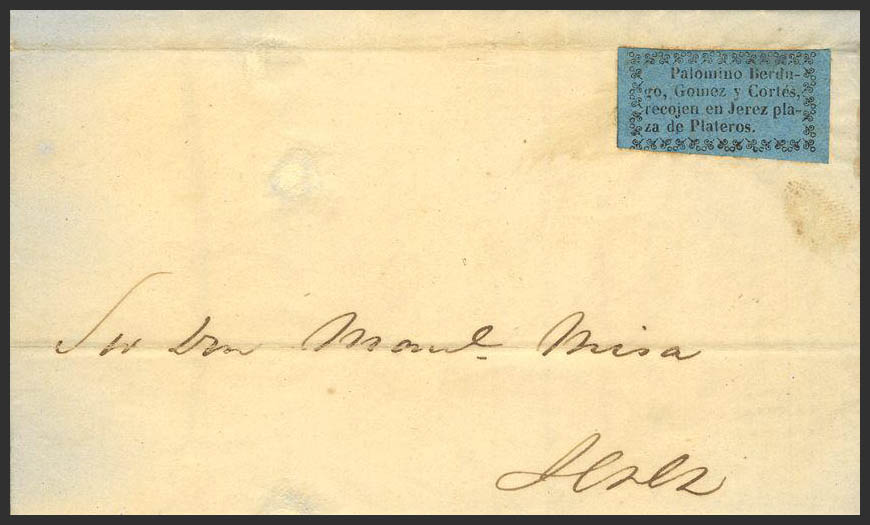 Palomino Berdu-
go, Gomez y Cortés,
recojen en Jerez pla-
za de Plateros.
Sor Don Manl. Misa
Jerez